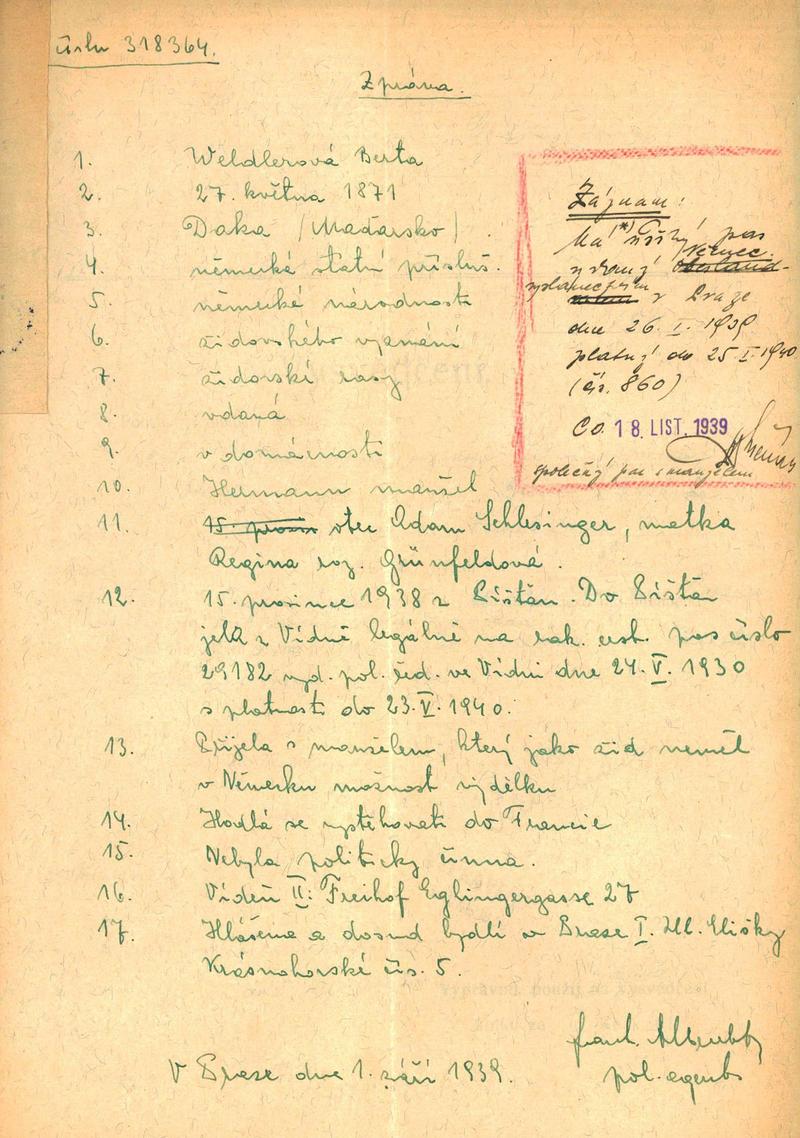 číslo 318364.
Zpráva.
1. Weldlerová Berta
2. 27. května 1871
3. Daka (Maďarsko)
4. německé státní přísluš.
5. německé národnosti
6. židovského vyznání
7. židovské rasy
8. vdaná
9. v domácnosti
10. Hermann manžel
11. otec Adam Schlesinger, matka
Regina roz. Grünfeldová.
12. 15. prosince 1938 z Píšťan. Do Píšťan
jela z Vídně legálně na rak. cest. pas číslo
29182 vyd. pol. řed. ve Vídni dne 24. V. 1930
s platností do 23. V. 1940.
13. Přijela s manželem, který jako žid neměl
v Německu možnost výdělku
14. Hodlá se vystěhovati do Francie
15. Nebyla politicky činna.
16. Vídeň II: Freihof Eglingergasse 27
17. Hlášena a dosud bydlí v Praze I. Ul. Elišky
Krásnohorské čís. 5.
V Praze dne 1. září 1939.
pol. agent
Záznam:
Má říšský pas
vydaný Německ.
vyslanectvím v Praze
dne 26. I. 1939
platný do 25. I. 1940
(čís. 860)
Co 18. LIST. 1939
společný pas s manželem